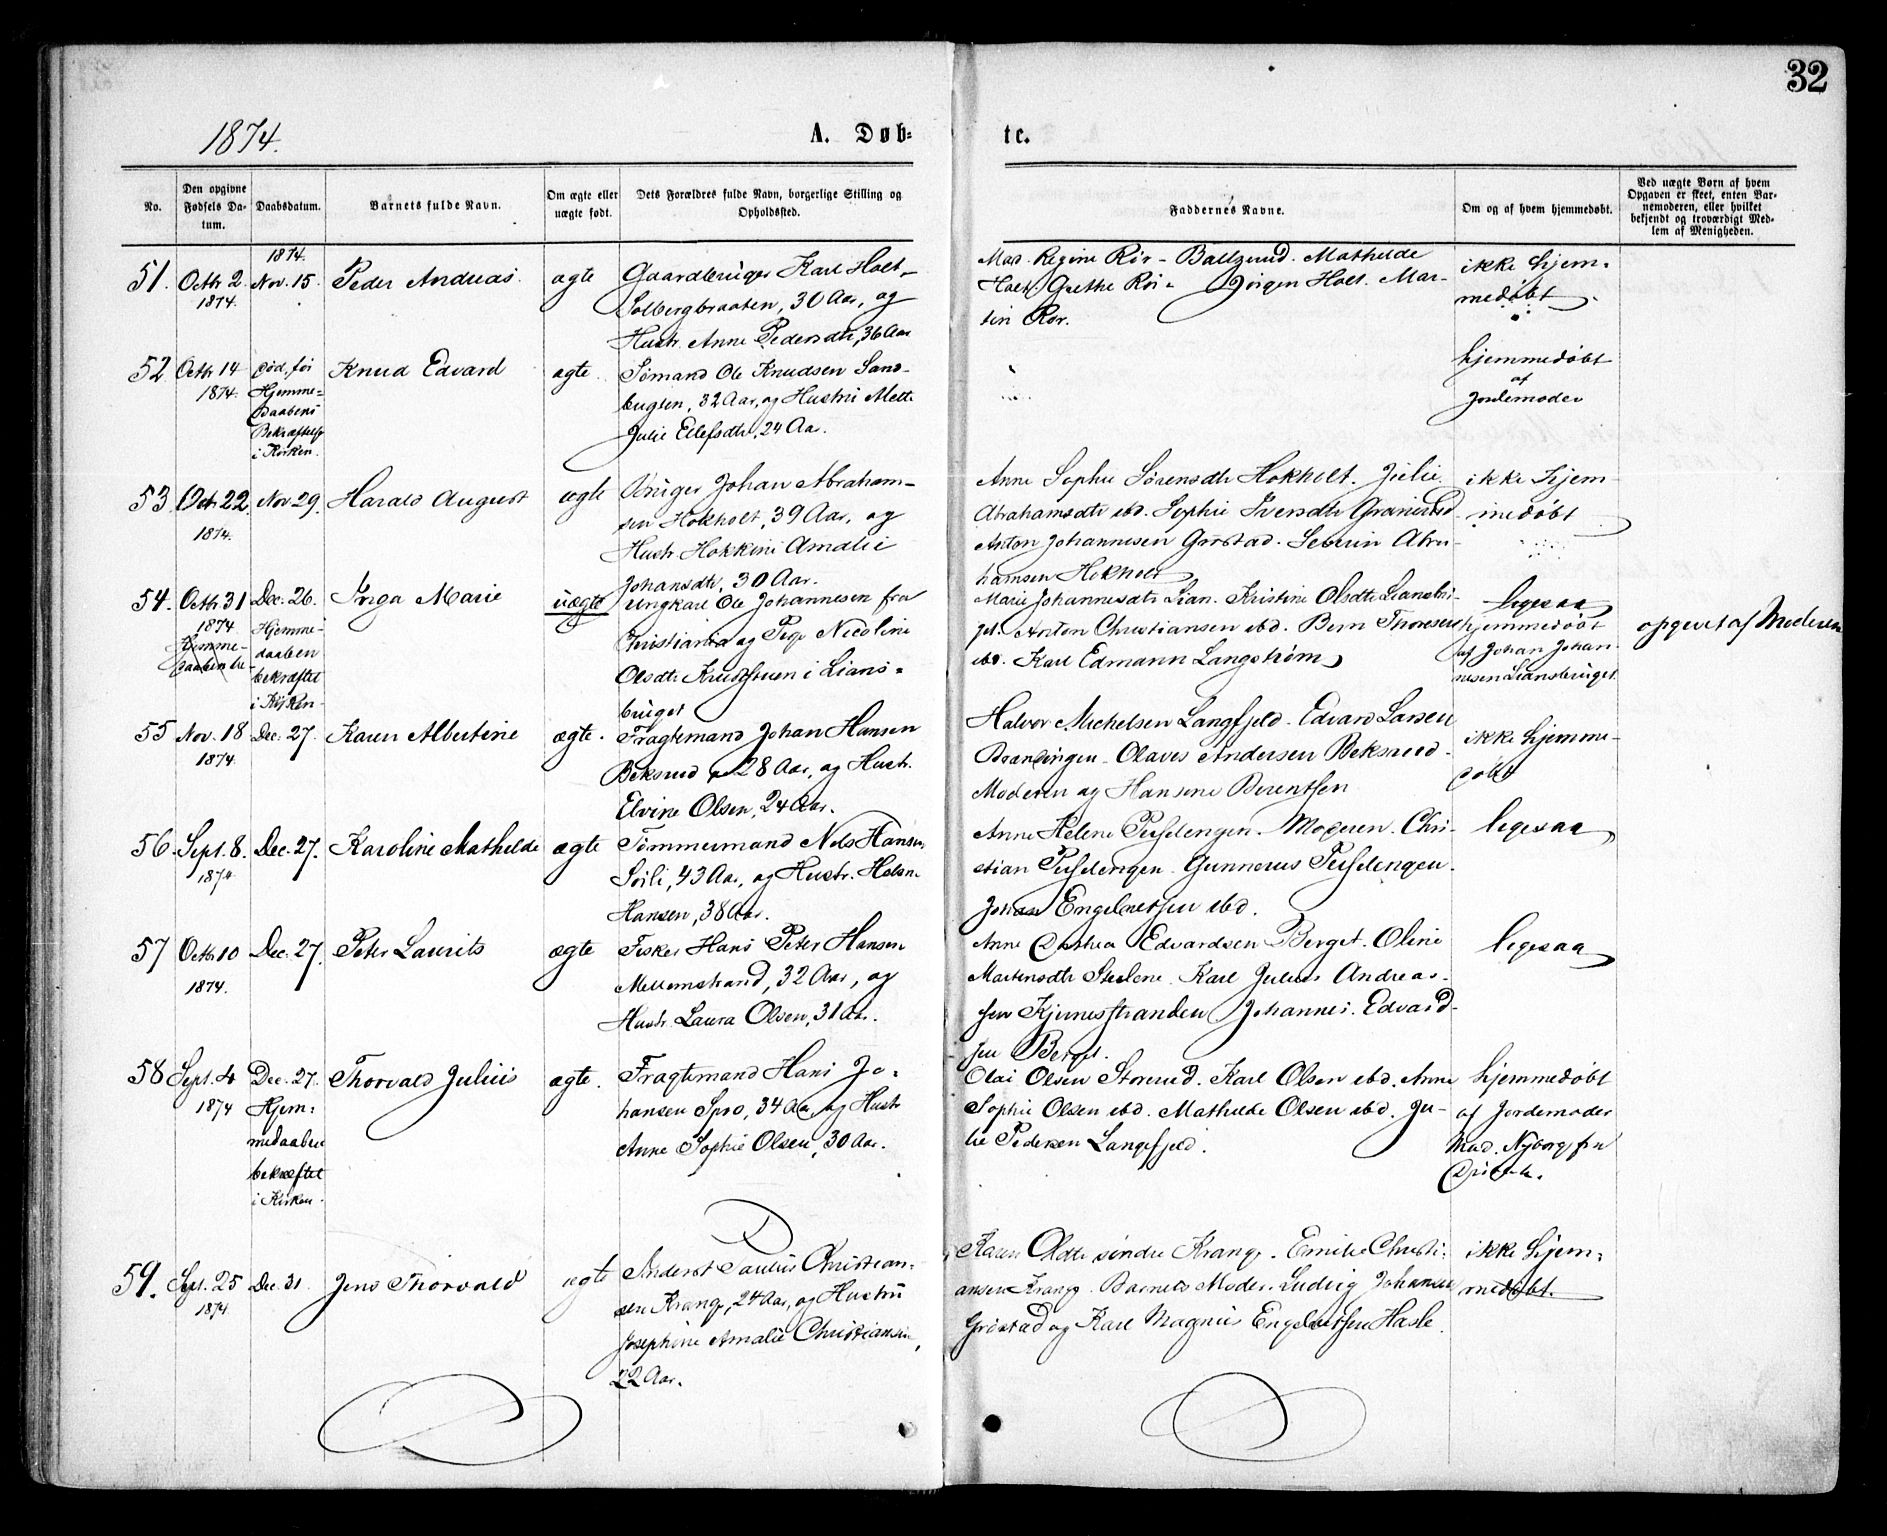 32
1874.
A. Døb-
te.
No.
Den opgivne
Fødsels Da-
tum.
Daabsdatum.
Barnets fulde Navn.
Om ægte eller
uægte født.
Dets Forældres fulde Navn, borgerlige Stilling og
Opholdssted.
Faddernes Navne.
Om og af hvem hjemmedøbt.
Ved uægte Børn af hvem
Opgaven er skeet, enten Bar-
nemoderen, eller hvilket
bekjendt og troværdigt Med-
lem af Menigheden.
51.
Octbr 2
1874.
1874.
Nov. 15.
Peder Andreas.
ægte
Gaardbruger Karl Holt,
Solbergbraaten, 30 Aar, og
Hustr. Anne Pedersdtr, 36 Aar
Mad. Regine Rør - Mathilde
Holt. Grethe Rør. Jørgen Holt. Mar-
tin Rør.
ikke hjem-
medøbt.
52
Octbr 14
1874.
død, før
Hjemme-
Daabens
Bekræftelse
i Kirken.
Knud Edvard
ægte.
Sømand Ole Knudsen Sand-
bugten, 32 Aar, og Hustru Mette
Julie Ellefsdtr, 24 Aar.
hjemmedøbt
af
Jordemoder
53.
Oct. 22
1874.
Nov. 29.
Harald August
ægte
Bruger Johan Abraham-
sen Hokholt, 39 Aar, og
Hustr. Amalie
Johansdtr, 30 Aar.
Anne Sophie Sørensdtr Hokholt. Julie
Abrahamsdtr ibd. Sophie Iversdtr
Anton Johannesen Grøstad. Severin Abra-
hamsen Hokholt
ikke hjem-
medøbt
54.
Octbr 31
1874
Hjemme-
daaben be-
Dec. 26.
Hjemme-
daaben
bekræftet
i Kirken.
Inga Marie
uægte
Ungkarl Ole Johannesen fra
Christiania og Pige Nicoline
Olsdtr i Lians-
bruget
Marie Johannesdtr Lian. Kristine Olsdtr Liansbru-
get. Anton Christiansen ibd. Bern Thoresen
ibd. Karl Edmann Langstrøm
ligesaa
hjemmedøbt
af Johan Johan-
nesen Liansbruget.
opgivet af Moderen
55
Nov. 18
1874.
Dec. 27.
Karen Albertine
ægte.
Fragtemand Johan Hansen
Beksrud 28 Aar, og Hustr.
Elvine Olsen, 24 Aar.
Halvor Michelsen Langfjeld. Edvard Larsen
Brændingen. Olaves Andersen Beksrud.
Moderen og Hansine Berentsen
ikke hjemme-
døbt
56.
Sept. 8.
1874.
Dec. 27.
Karoline Mathilde
ægte
Tømmermand Nils Hansen
43 Aar, og Hustr. Helene
Hansen, 38 Aar.
Anne Helene Moderen. Chri-
stian Gunnerus
Johan Engelvetsen ibd.
ligesaa
57
Octbr 10
1874.
Dec. 27.
Peter Laurits
ægte
Fisker Hans Peter Hansen
Mellemstrand, 32 Aar, og
Hustr. Laura Olsen, 31 Aar.
Anne Edvardsen Berget. Oline
Martensdtr Karl Julius Andrea-
sen Johannes Edvard-
sen Berget.
ligesaa
58
Sept. 4
1874
Dec. 27.
Hjem-
medaaben
bekræftet
i Kirken.
Thorvald Julius
ægte.
Fragtemand Hans Jo-
hansen Spro, 34 Aar, og Hustr
Anne Sophie Olsen, 30 Aar.
Olai Olsen Storerud. Karl Olsen ibd. Anne
Sophie Olsen ibd. Mathilde Olsen ibd. Ju-
lie Pedersen Langfjeld.
hjemmedøbt
af Jordemoder
Mad. Nyborg fra
59.
Sept. 25
1874.
Dec. 31.
Jens Thorvald
ægte
Inderst Paulus Christian-
sen Krange, 24 Aar, og Hustru
Josephine Amalie Christiansen,
22 Aar.
Karen Olsdtr søndre Krange. Emilie Christi-
ansen Krange. Barnets Moder. Ludvig Johansen
Grøstad og Karl Magnus Engelvetsen Hasle.
ikke hjem-
medøbt.